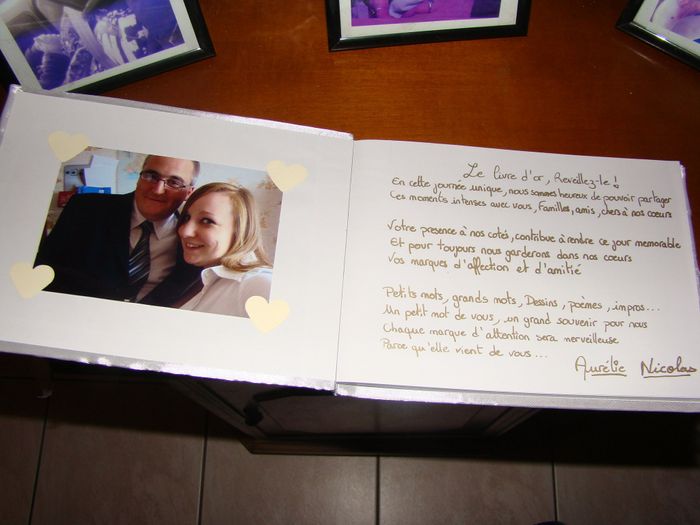 Le livre d'or, Réveillez-le !
En cette journée unique, nous sommes heureux de pouvoir partager
Ces moments intenses avec vous, Familles, amis, chers à nos coeurs
Votre présence à nos cotés, contribue à rendre ce jour memorable
Et pour toujours nous garderons dans nos coeurs
Vos marques d'affection et d'amitié
Petits mots, grands mots, Dessins, poèmes, impros...
Un petit mot de vous, un grand souvenir pour nous
Chaque marque d'attention sera merveilleuse
Parce qu'elle vient de vous...
Aurélie Nicolas